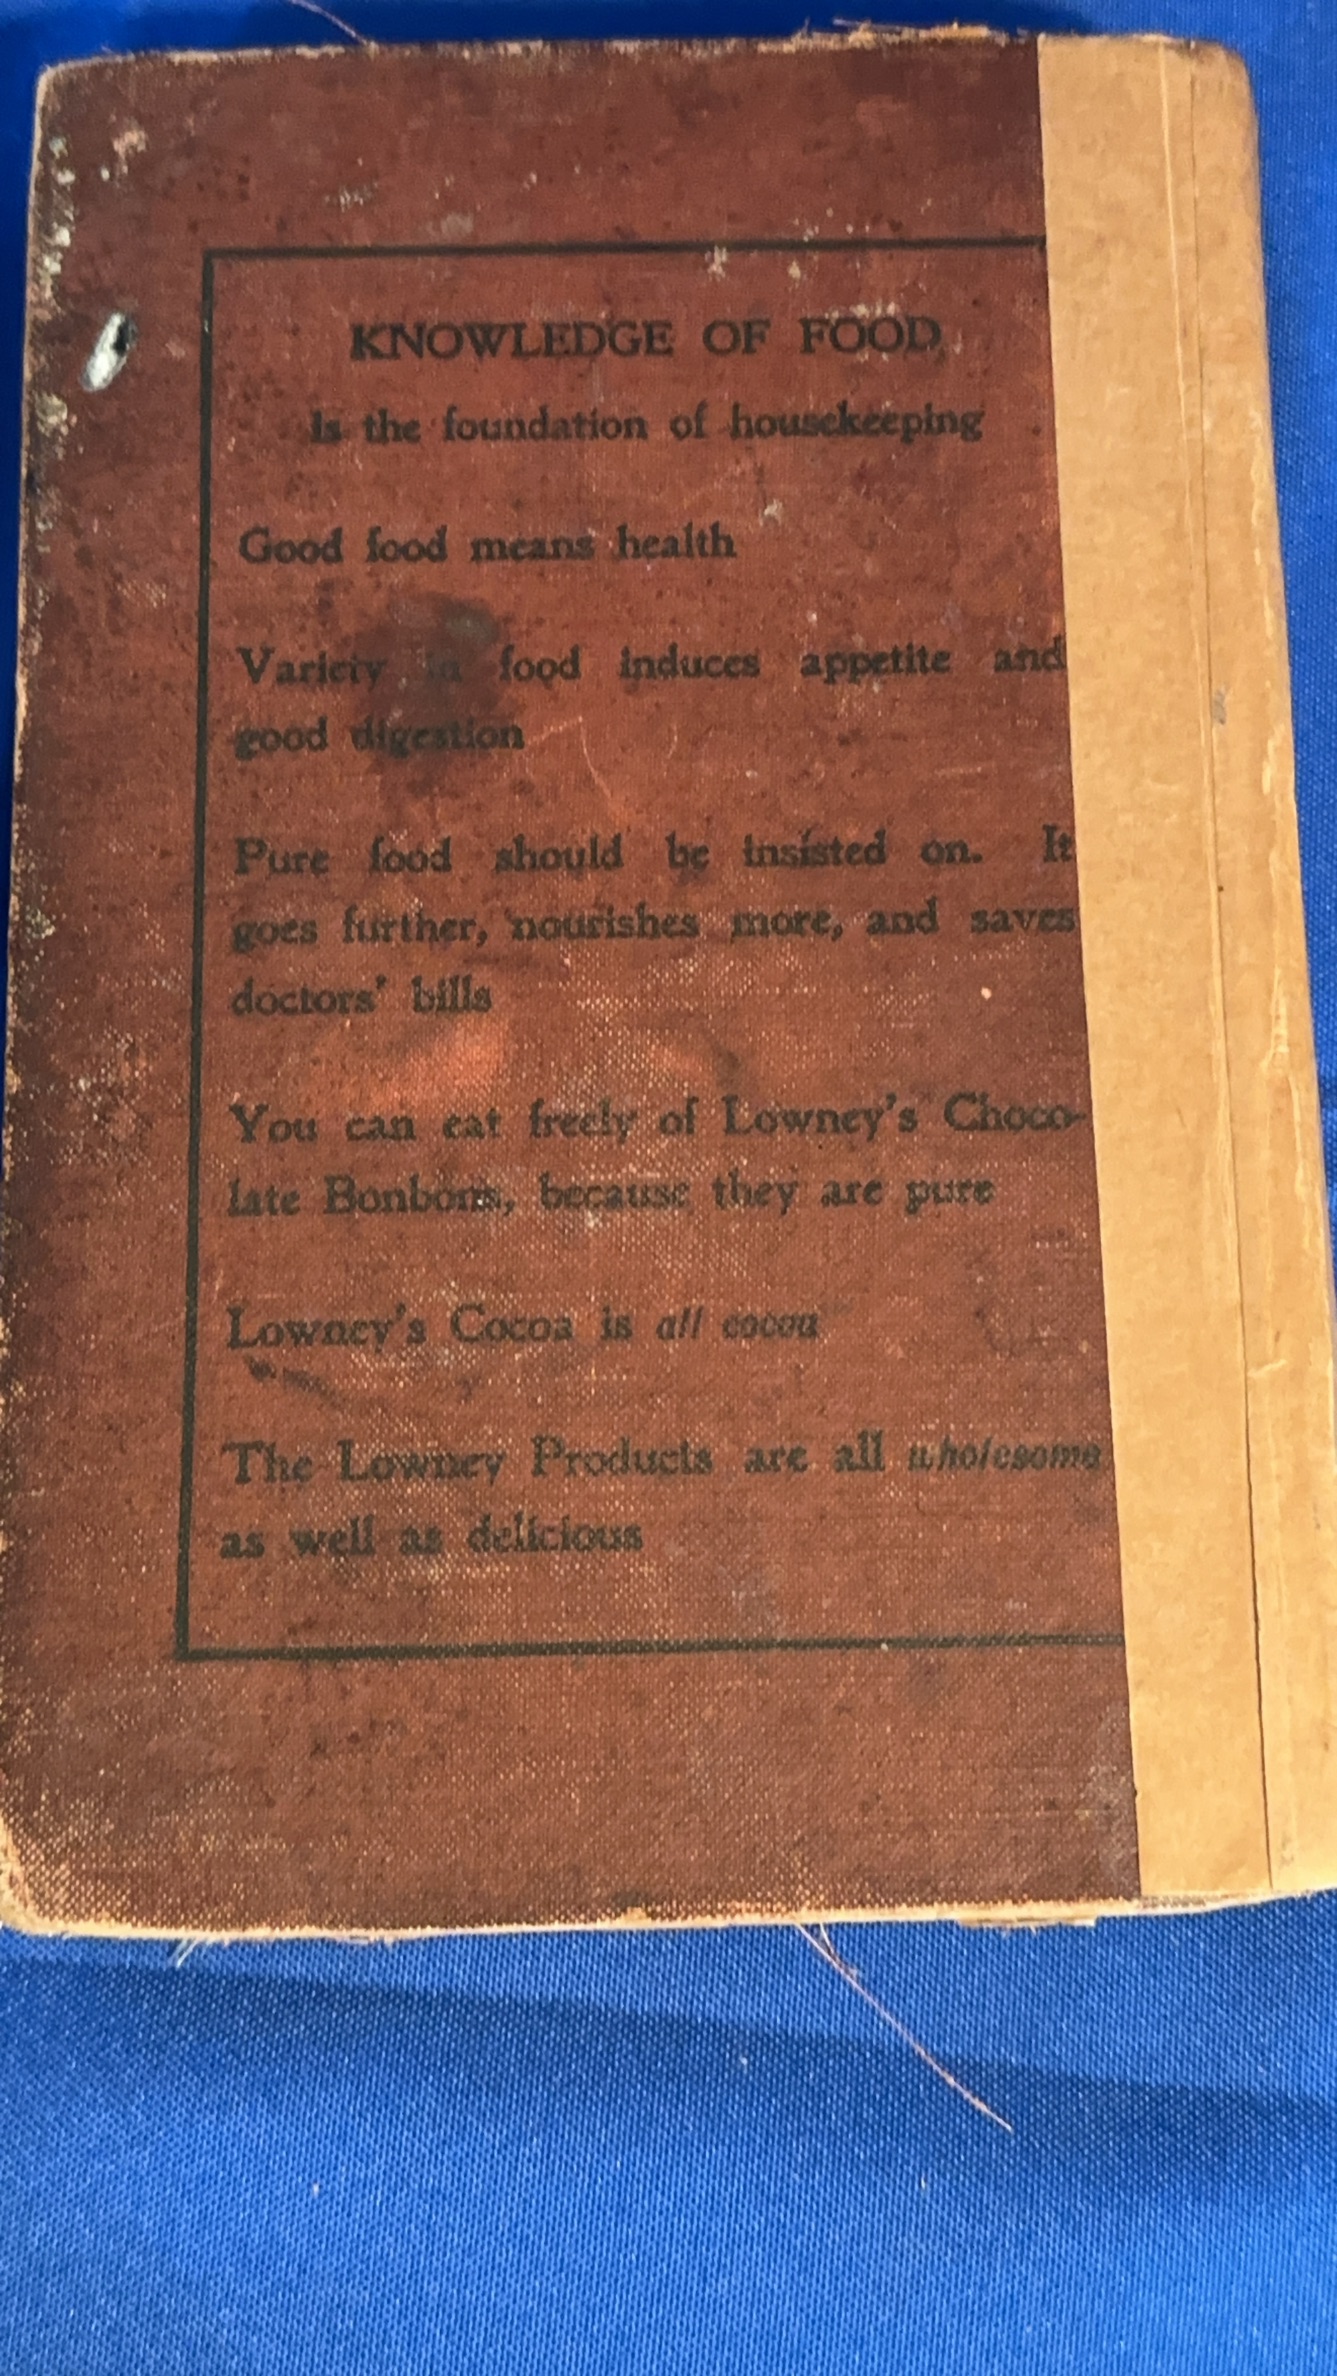 KNOWLEDGE OF FOOD
Is the foundation of housekeeping
Good food means health
Variety in food induces appetite and
good digestion
Pure food should be insisted on. It
goes further, nourishes more, and saves
doctors' bills
You can eat freely of Lowney's Choco-
late Bonbons, because they are pure
Lowney's Cocoa is all cocoa
The Lowney Products are all wholesome
as well as delicious